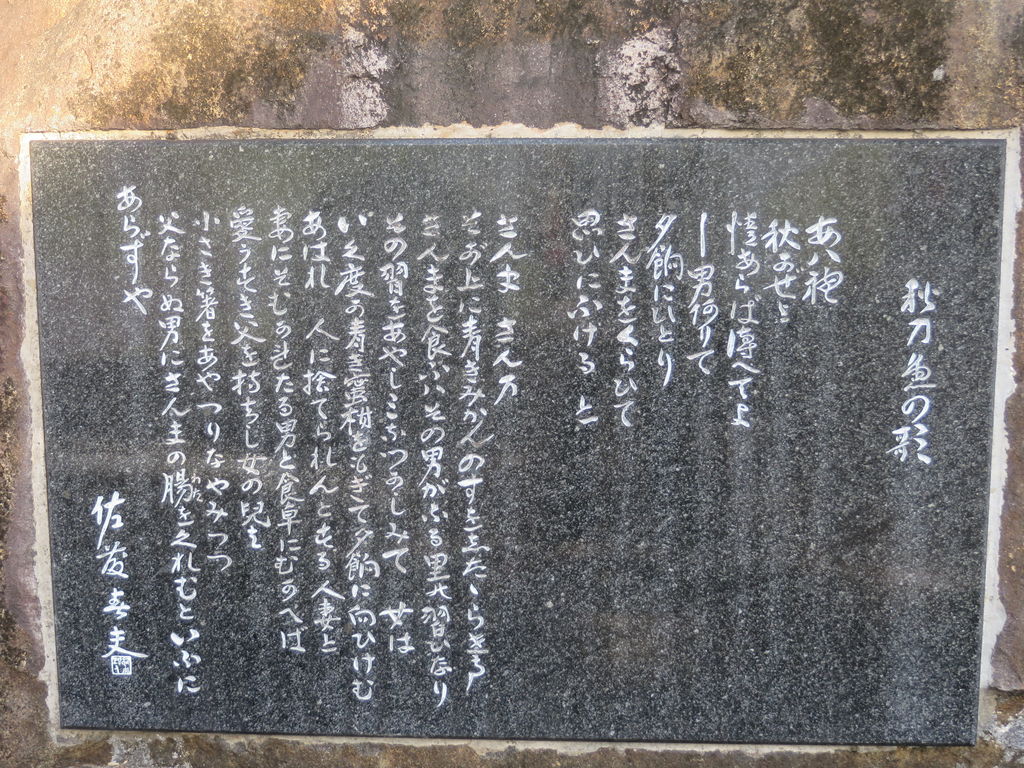 秋刀魚の歌
あハ禮
秋かぜよ
情あらば傳へてよ
一男ありて
夕餉にひとり
さんまをくらひて
思ひにふける と
さんま さんま
そが上に青きみかんのすをしたゝらせて
さんまを食ふハその男がふる里の習ひなり
その習をあやしミなつかしみて 女は
いく度か青き蜜柑をもぎて夕餉に向ひけむ
あはれ 人に捨てられんとする人妻と
妻にそむかれたる男と食卓にむかへば
愛うすき父を持ちし女の兒は
小さき箸をあやつりなやみつつ
父ならぬ男にさんまの腸をくれむといふに
わた
あらずや
佐藤春夫